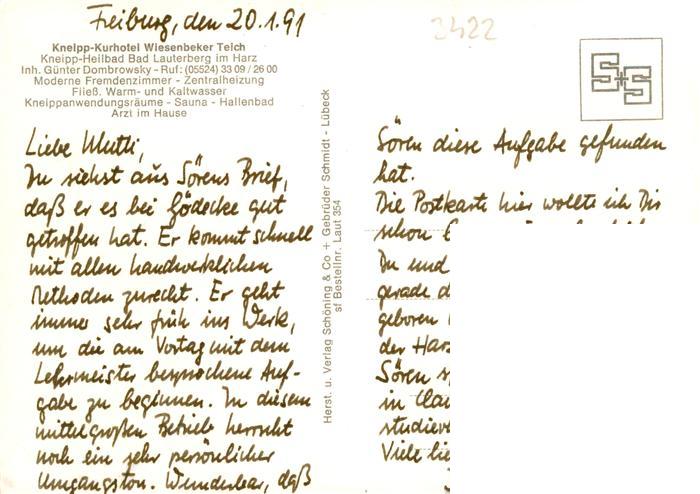 Freiburg, den 20.1.91
3422
Kneipp-Kurhotel Wiesenbeker Teich
Kneipp-Heilbad Bad Lauterberg im Harz
Inh. Günter Dombrowsky - Ruf: (05524) 33 09 / 26 00
Moderne Fremdenzimmer - Zentralheizung
Fließ. Warm- und Kaltwasser
Kneippanwendungsräume - Sauna - Hallenbad
Arzt im Hause
S+S
Liebe Mutti,
Du siehst aus Sörens Brief,
daß er es bei Gödecke gut
getroffen hat. Er kommt schnell
mit allen handwerklichen
Methoden zurecht. Er geht
immer sehr früh ins Werk,
um die am Vortag mit dem
Lehrmeister besprochene Auf-
gabe zu beginnen. In diesem
mittelgroßen Betrieb herrscht
noch ein sehr persönlicher
Umgangston. Wunderbar, daß
Herst. u. Verlag Schöning & Co + Gebrüder Schmidt - Lübeck
sf Bestellnr. Laut 354
Sören diese Aufgabe gefunden
hat.
Die Postkarte hier wollte ich Dir
schon
Du und
gerade d
geboren
der Harz
Sören s
in Clau
studier
Viele lie